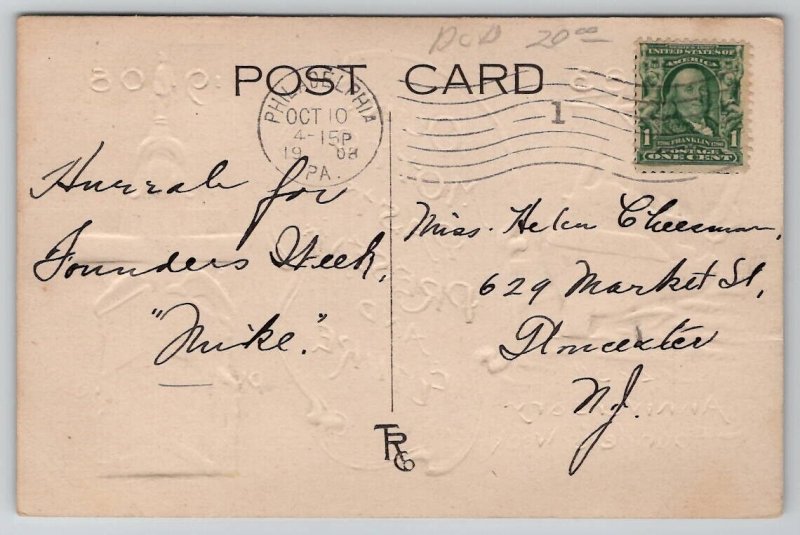 DCD 20.00
POST CARD
PHILADELPHIA
OCT 10
4-15P
1908
PA.
1
SERIES 1902
UNITED STATES OF
AMERICA
1 FRANKLIN 1
POSTAGE
ONE CENT
Hurrah for
Founders Week,
"Mike."
Miss. Helen Cheesman,
629 Market St,
Gloucester
N.J.
TRCo